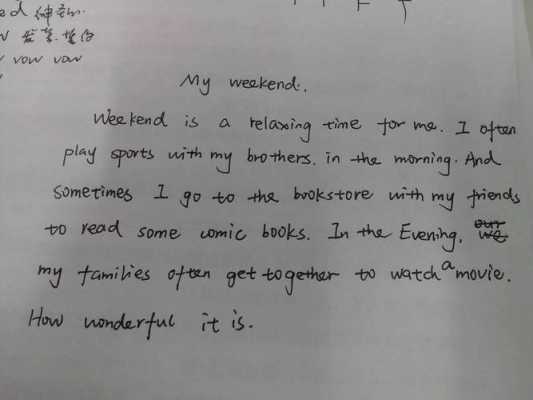 vow vow
My weekend.
Weekend is a relaxing time for me. I often
play sports with my brothers. in the morning. And
sometimes I go to the bookstore with my friends
to read some comic books. In the Evening,
my families often get together to watch a movie.
How wonderful it is.